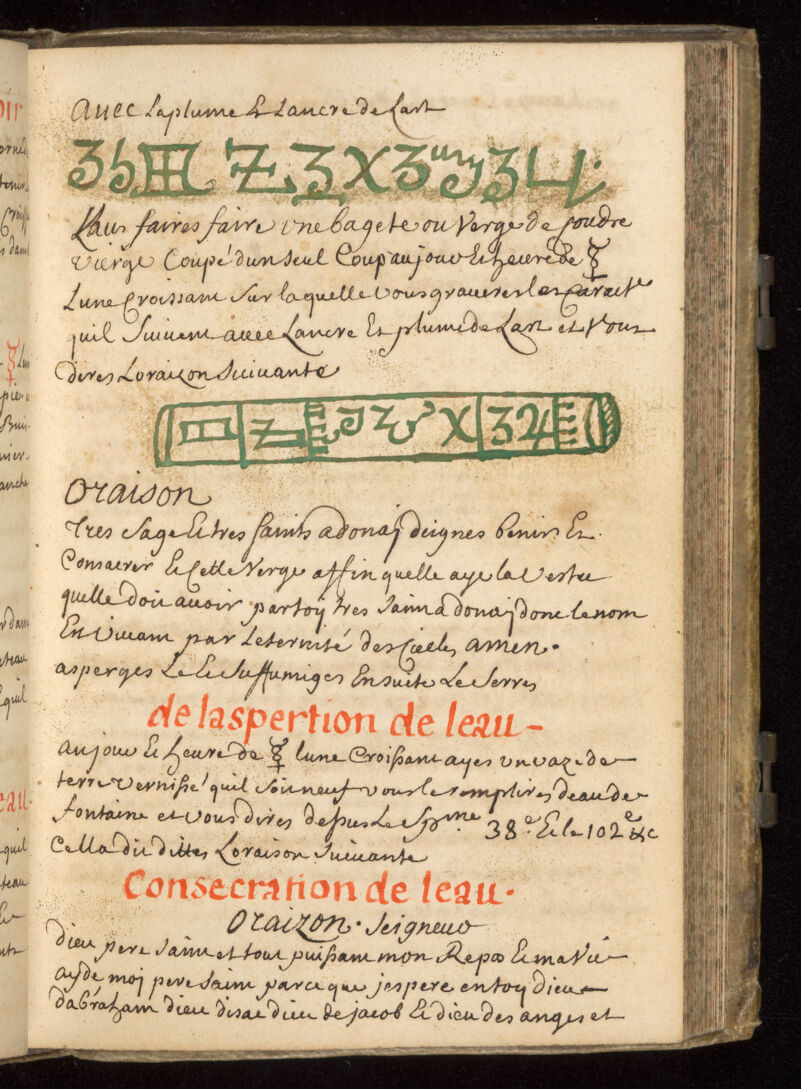 avec la plume Et Lancre de Lart
Vaus faires faire une bagete ou Verge de poudre
vierge Coupé dun seul Coup au jour Et heure de ☿
Lune Croissant sur laquelle vous graverer les Caract
quil suivent avec Lancre Et plume de Lart et vous
dires Loraizon suivante
Oraison
Tres sage Et tres saints adonaÿ deignes benir Et
Consacrer Et Cette Verge affin quelle aye la Vertu
quelle doit avoir par toÿ tres saint adonaj dont le nom
Est Vivant par Leternité des Cielles amen.
asperges Le Et suffumiges Ensuite Le Serres
de laspertion de leau -
au jour Et heure de ☿ lune Croissant ayes un vaze de
terre vernissé quil soit neuf vous le remplires deau de
fontaine et vous dires dessus Le Spme 38e Et le 102e &c
Cella dit dittes Loraison suivante
Consecration de leau.
Oraizon. Seigneur
dieu pere saint et tout puissant mon Repos Et ma Vie
ayde moj pere saint parce que jespere en toy dieu
dabraham dieu disac dieu de jacob Et dieu des anges et